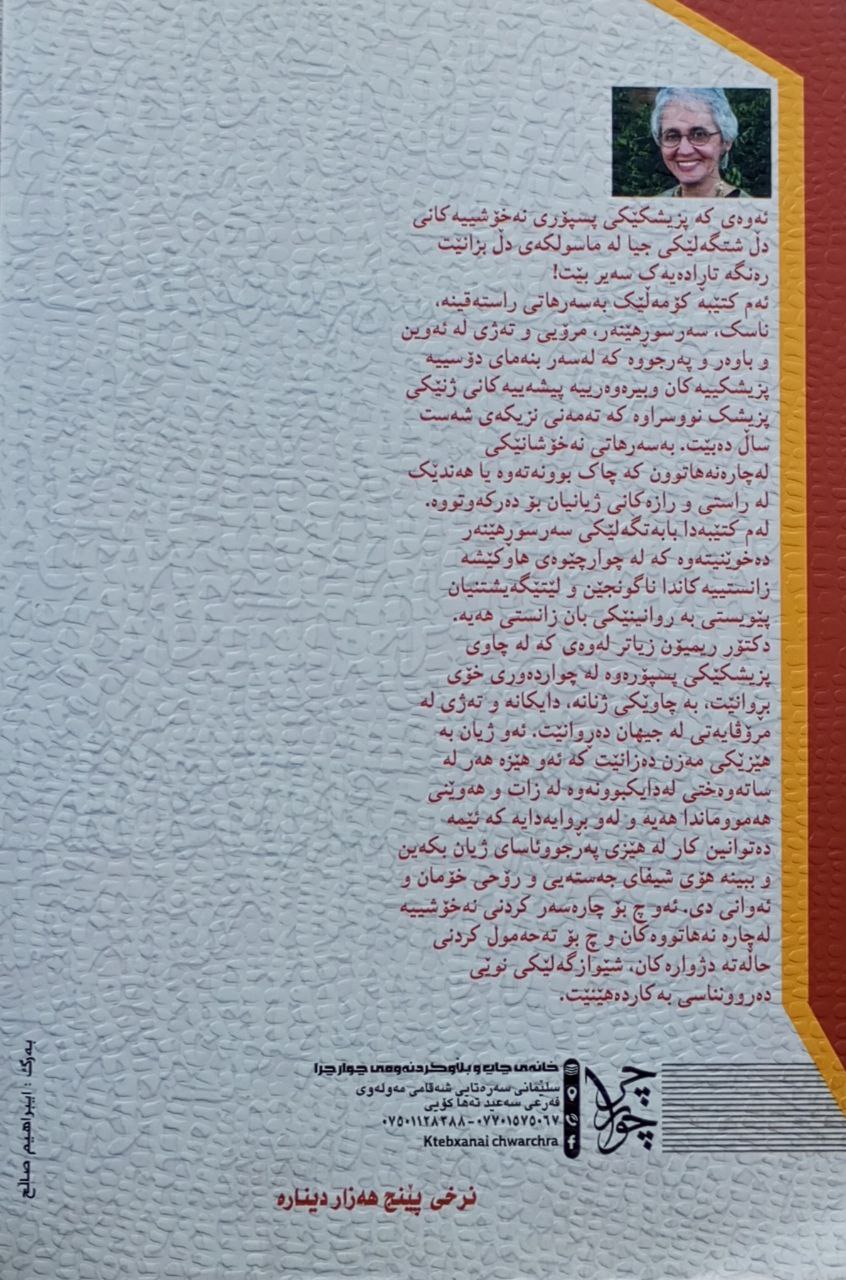 ئەوەی کە پزیشکێکی پسپۆری نەخۆشییەکانی
دڵ شتگەلێکی جیا لە ماسولکەی دڵ بزانێت
رەنگە تاڕادەیەک سەیر بێت!
ئەم کتێبە کۆمەڵێک بەسەرهاتی راستەقینە،
ناسک، سەرسوڕهێنەر، مرۆیی و تەژی لە ئەوین
و باوەر و پەرجووە کە لەسەر بنەمای دۆسییە
پزیشکییەکان وبیرەوەرییە پیشەییەکانی ژنێکی
پزیشک نووسراوە کە تەمەنی نزیکەی شەست
ساڵ دەبێت. بەسەرهاتی نەخۆشانێکی
لەچارەنەهاتوون کە چاک بوونەتەوە یا هەندێک
لە راستی و رازەکانی ژیانیان بۆ دەرکەوتووە.
لەم کتێبەدا بابەتگەلێکی سەرسوڕهێنەر
دەخوێنیتەوە کە لە چوارچێوەی هاوکێشە
زانستییەکاندا ناگونجێن و لێتێگەیشتنیان
پێویستی بە روانینێکی بان زانستی هەیە.
دکتۆر ریمیۆن زیاتر لەوەی کە لە چاوی
پزیشکێکی پسپۆرەوە لە چواردەوری خۆی
بڕوانێت، بە چاوێکی ژنانە، دایکانە و تەژی لە
مرۆڤایەتی لە جیهان دەڕوانێت. ئەو ژیان بە
هێزێکی مەزن دەزانێت کە ئەو هێزە هەر لە
ساتەوەختی لەدایکبوونەوە لە زات و هەوێنی
هەمووماندا هەیە و لەو بڕوایەدایە کە ئێمە
دەتوانین کار لە هێزی پەرجووئاسای ژیان بکەین
و ببینە هۆی شیفای جەستەیی و رۆحی خۆمان و
ئەوانی دی. ئەو چ بۆ چارەسەر کردنی نەخۆشییە
لەچارە نەهاتووەکان و چ بۆ تەحەمول کردنی
حاڵەتە دژوارەکان، شێوازگەلێکی نوێی
دەروونناسی بەکاردەهێنێت.
چوارچرا
خانەی چاپ و بڵاوکردنەوەی چوارچرا
سلێمانی سەرەتایی شەقامی مەولەوی
فەرعی سەعید تەها کۆیی
٠٧٥٠١١٢٨٣٨٨-٠٧٧٠١٥٧٥٠٦٧
Ktebxanai chwarchra
نرخی پێنج هەزار دینارە
بەرگ : ئیبراهیم صاڵح